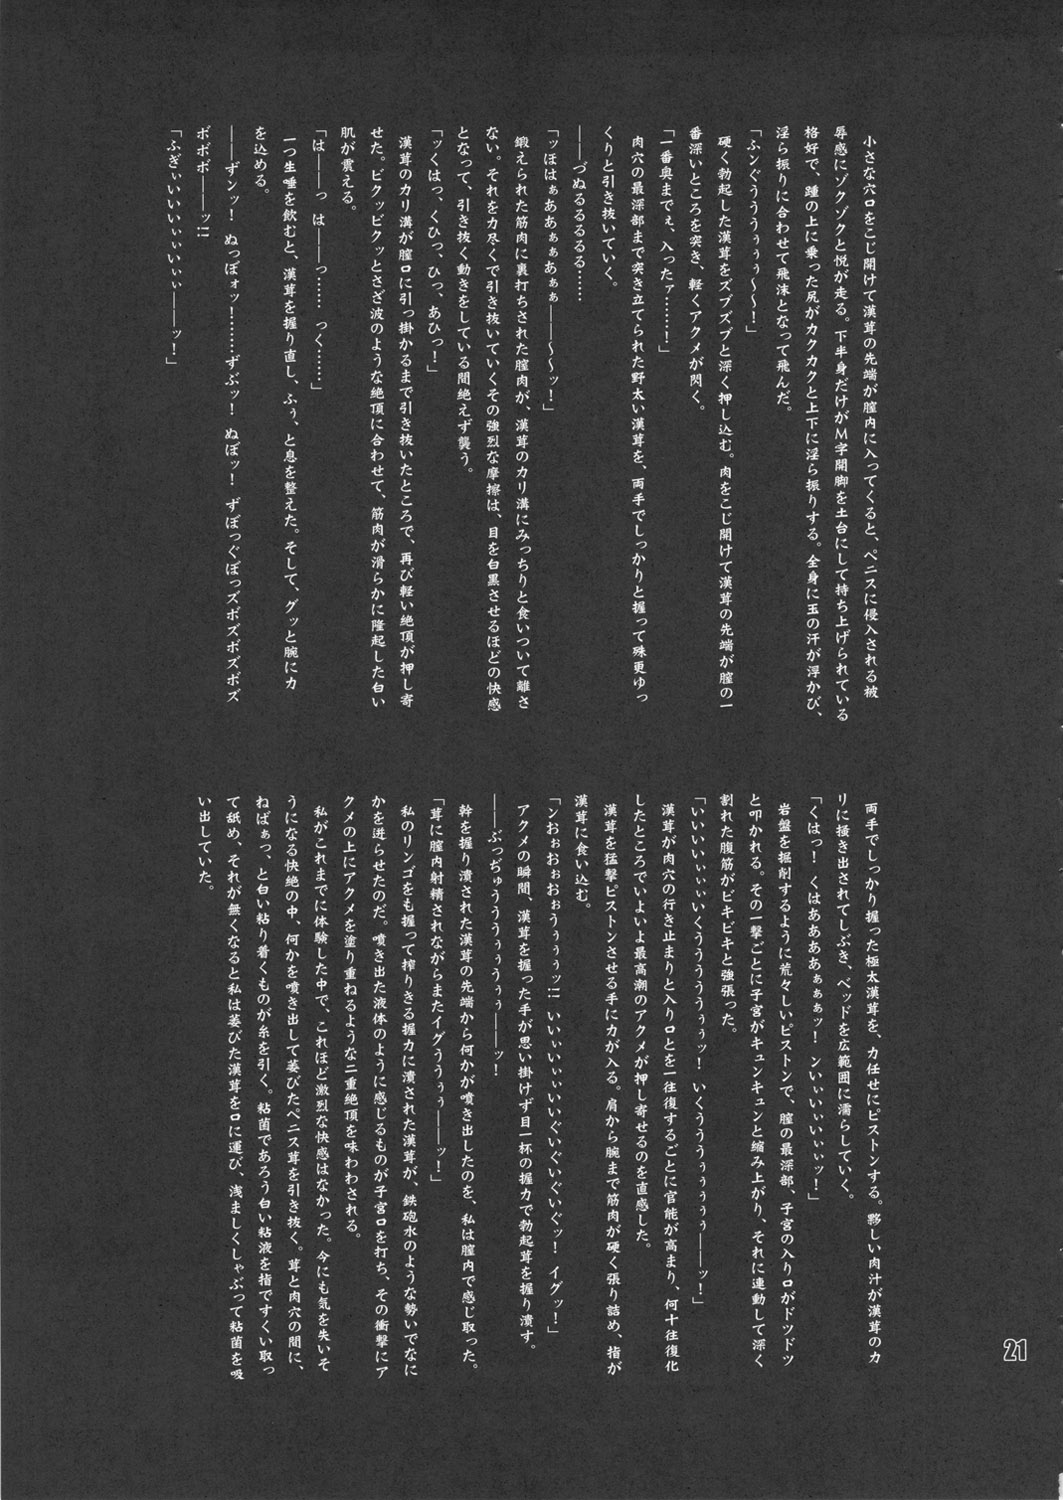 小さな穴口をこじ開けて漢茸の先端が膣内に入ってくると、ペニスに侵入される被
辱感にゾクゾクと悦が走る。下半身だけがM字開脚を土台にして持ち上げられている
格好で、踵の上に乗った尻がカクカクと上下に淫ら振りする。全身に玉の汗が浮かび、
淫ら振りに合わせて飛沫となって飛んだ。
「ふンぐうううぅぅぅ〜〜！」
硬く勃起した漢茸をズブズブと深く押し込む。肉をこじ開けて漢茸の先端が膣の一
番深いところを突き、軽くアクメが閃く。
「一番奥までぇ、入ったァ……！」
肉穴の最深部まで突き立てられた野太い漢茸を、両手でしっかりと握って殊更ゆっ
くりと引き抜いていく。
――づぬるるるるる……
「ッほはぁああぁぁあぁぁ――〜〜ッ！」
鍛えられた筋肉に裏打ちされた膣肉が、漢茸のカリ溝にみっちりと食いついて離さ
ない。それを力尽くで引き抜いていくその強烈な摩擦は、目を白黒させるほどの快感
となって、引き抜く動きをしている間絶えず襲う。
「ッくはっ、くひっ、ひっ、あひっ！」
漢茸のカリ溝が膣口に引っ掛かるまで引き抜いたところで、再び軽い絶頂が押し寄
せた。ビクッビクッとさざ波のような絶頂に合わせて、筋肉が滑らかに隆起した白い
肌が震える。
「は――っ　は――っ……　っく……」
一つ生唾を飲むと、漢茸を握り直し、ふぅ、と息を整えた。そして、グッと腕に力
を込める。
――ずンッ！　ぬっぽォッ！……ずぶッ！　ぬぼッ！　ずぼっぐぼっズボズボズボズ
ボボボ――ッ!!
「ふぎぃいいいぃぃいぃぃ――ッ！」
両手でしっかり握った極太漢茸を、力任せにピストンする。夥しい肉汁が漢茸のカ
リに掻き出されてしぶき、ベッドを広範囲に濡らしていく。
「くはっ！　くはああああぁぁぁッ！　ンいぃいぃいぃぃッ！」
岩盤を掘削するように荒々しいピストンで、膣の最深部、子宮の入り口がドツドツ
と叩かれる。その一撃ごとに子宮がキュンキュンと縮み上がり、それに連動して深く
割れた腹筋がビキビキと強張った。
「いいいいぃぃぃいくううううぅぅッ！　いくううぅぅぅぅぅ――ッ！」
漢茸が肉穴の行き止まりと入り口とを一往復するごとに官能が高まり、何十往復化
したところでいよいよ最高潮のアクメが押し寄せるのを直感した。
漢茸を猛撃ピストンさせる手に力が入る。肩から腕まで筋肉が硬く張り詰め、指が
漢茸に食い込む。
「ンおぉおぉおぉうぅぅぅッ!!　いいぃいぃぃいいぐいぐいぐッ！　イグッ！」
アクメの瞬間、漢茸を握った手が思い掛けず目一杯の握力で勃起茸を握り潰す。
――ぶっぢゅううううぅぅうぅぅ――ッ！
幹を握り潰された漢茸の先端から何かが噴き出したのを、私は膣内で感じ取った。
「茸に膣内射精されながらまたイグううぅぅ――ッ！」
私のリンゴをも握って搾りきる握力に潰された漢茸が、鉄砲水のような勢いでなに
かを迸らせたのだ。噴き出た液体のように感じるものが子宮口を打ち、その衝撃にア
クメの上にアクメを塗り重ねるような二重絶頂を味わわされる。
私がこれまでに体験した中で、これほど激烈な快感はなかった。今にも気を失いそ
うになる快絶の中、何かを噴き出して萎びたペニス茸を引き抜く。茸と肉穴の間に、
ねばぁっ、と白い粘り着くものが糸を引く。粘菌であろう白い粘液を指ですくい取っ
て舐め、それが無くなると私は萎びた漢茸を口に運び、浅ましくしゃぶって粘菌を吸
い出していた。
21